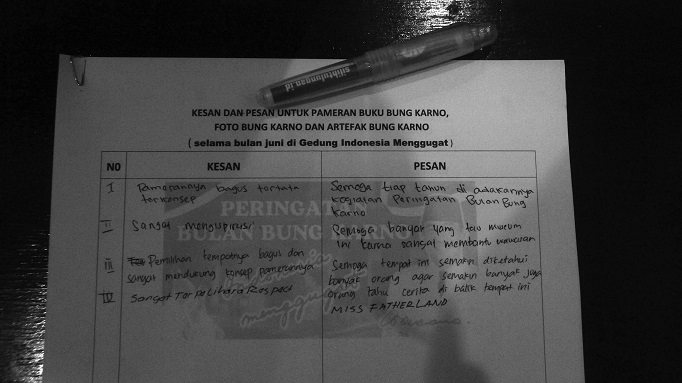 silihtulungan.id
KESAN DAN PESAN UNTUK PAMERAN BUKU BUNG KARNO,
FOTO BUNG KARNO DAN ARTEFAK BUNG KARNO
( selama bulan juni di Gedung Indonesia Menggugat )
NO KESAN PESAN
I Pamerannya bagus tertata
terkonsep
Semoga tiap tahun di adakannya
kegiatan Peringatan Bulan Bung
Karno
II Sangat menginspirasi
Semoga banyak yang tau museum
ini karna sangat membantu wawasan
III Pemilihan tempatnya bagus dan
sangat mendukung konsep pamerannya
Semoga tempat ini semakin diketahui
banyak orang agar semakin banyak juga
orang tahu cerita di balik tempat ini
IV Sangat Terpelihara Respect
MISS FATHERLAND
PERINGATAN
BULAN BUNG KARNO
menggugat